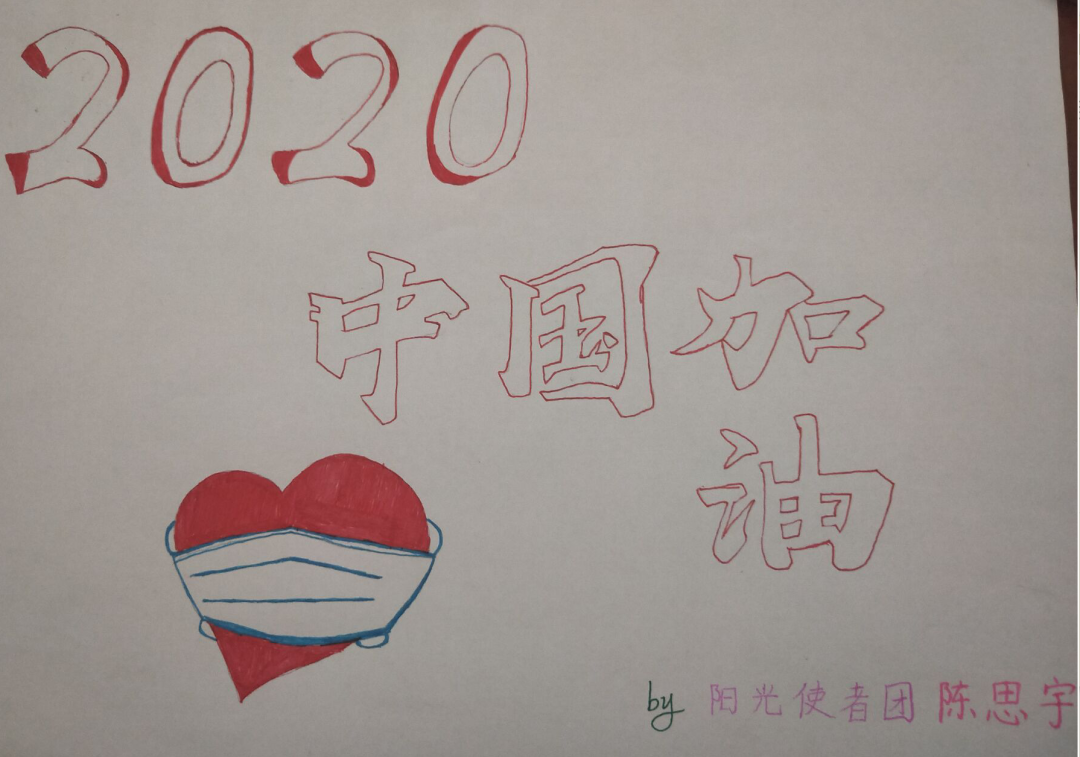 2020
中国加
油
by 阳光使者团 陈思宇